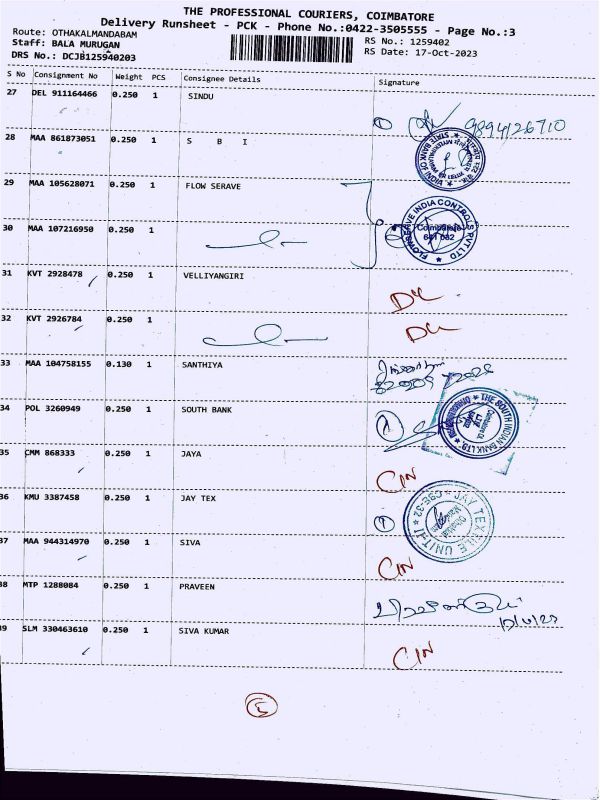 THE PROFESSIONAL COURIERS, COIMBATORE
Delivery Runsheet - PCK - Phone No.:0422-3505555 - Page No.:3
Route: OTHAKALMANDABAM
RS No.: 1259402
Staff: BALA MURUGAN
RS Date: 17-Oct-2023
DRS No.: DCJB125940203
S No Consignment No Weight PCS Consignee Details Signature
27 DEL 911164466 0.250 1 SINDU
9894126710
28 MAA 861873051 0.250 1 S B I
STATE BANK OF INDIA
29 MAA 105628071 0.250 1 FLOW SERAVE
FLOWSERVE INDIA CONTROLS PVT LTD
Coimbatore
641 032
30 MAA 107216950 0.250 1
31 KVT 2928478 0.250 1 VELLIYANGIRI
DL
32 KVT 2926784 0.250 1
DL
33 MAA 104758155 0.130 1 SANTHIYA
34 POL 3260949 0.250 1 SOUTH BANK
THE SOUTH INDIAN BANK LTD.
35 CMM 868333 0.250 1 JAYA
CIN
36 KMU 3387458 0.250 1 JAY TEX
JAY TEXTILE UNIT-II
CBE-32
37 MAA 944314970 0.250 1 SIVA
CIN
38 MTP 1288084 0.250 1 PRAVEEN
39 SLM 330463610 0.250 1 SIVA KUMAR
CIN
5